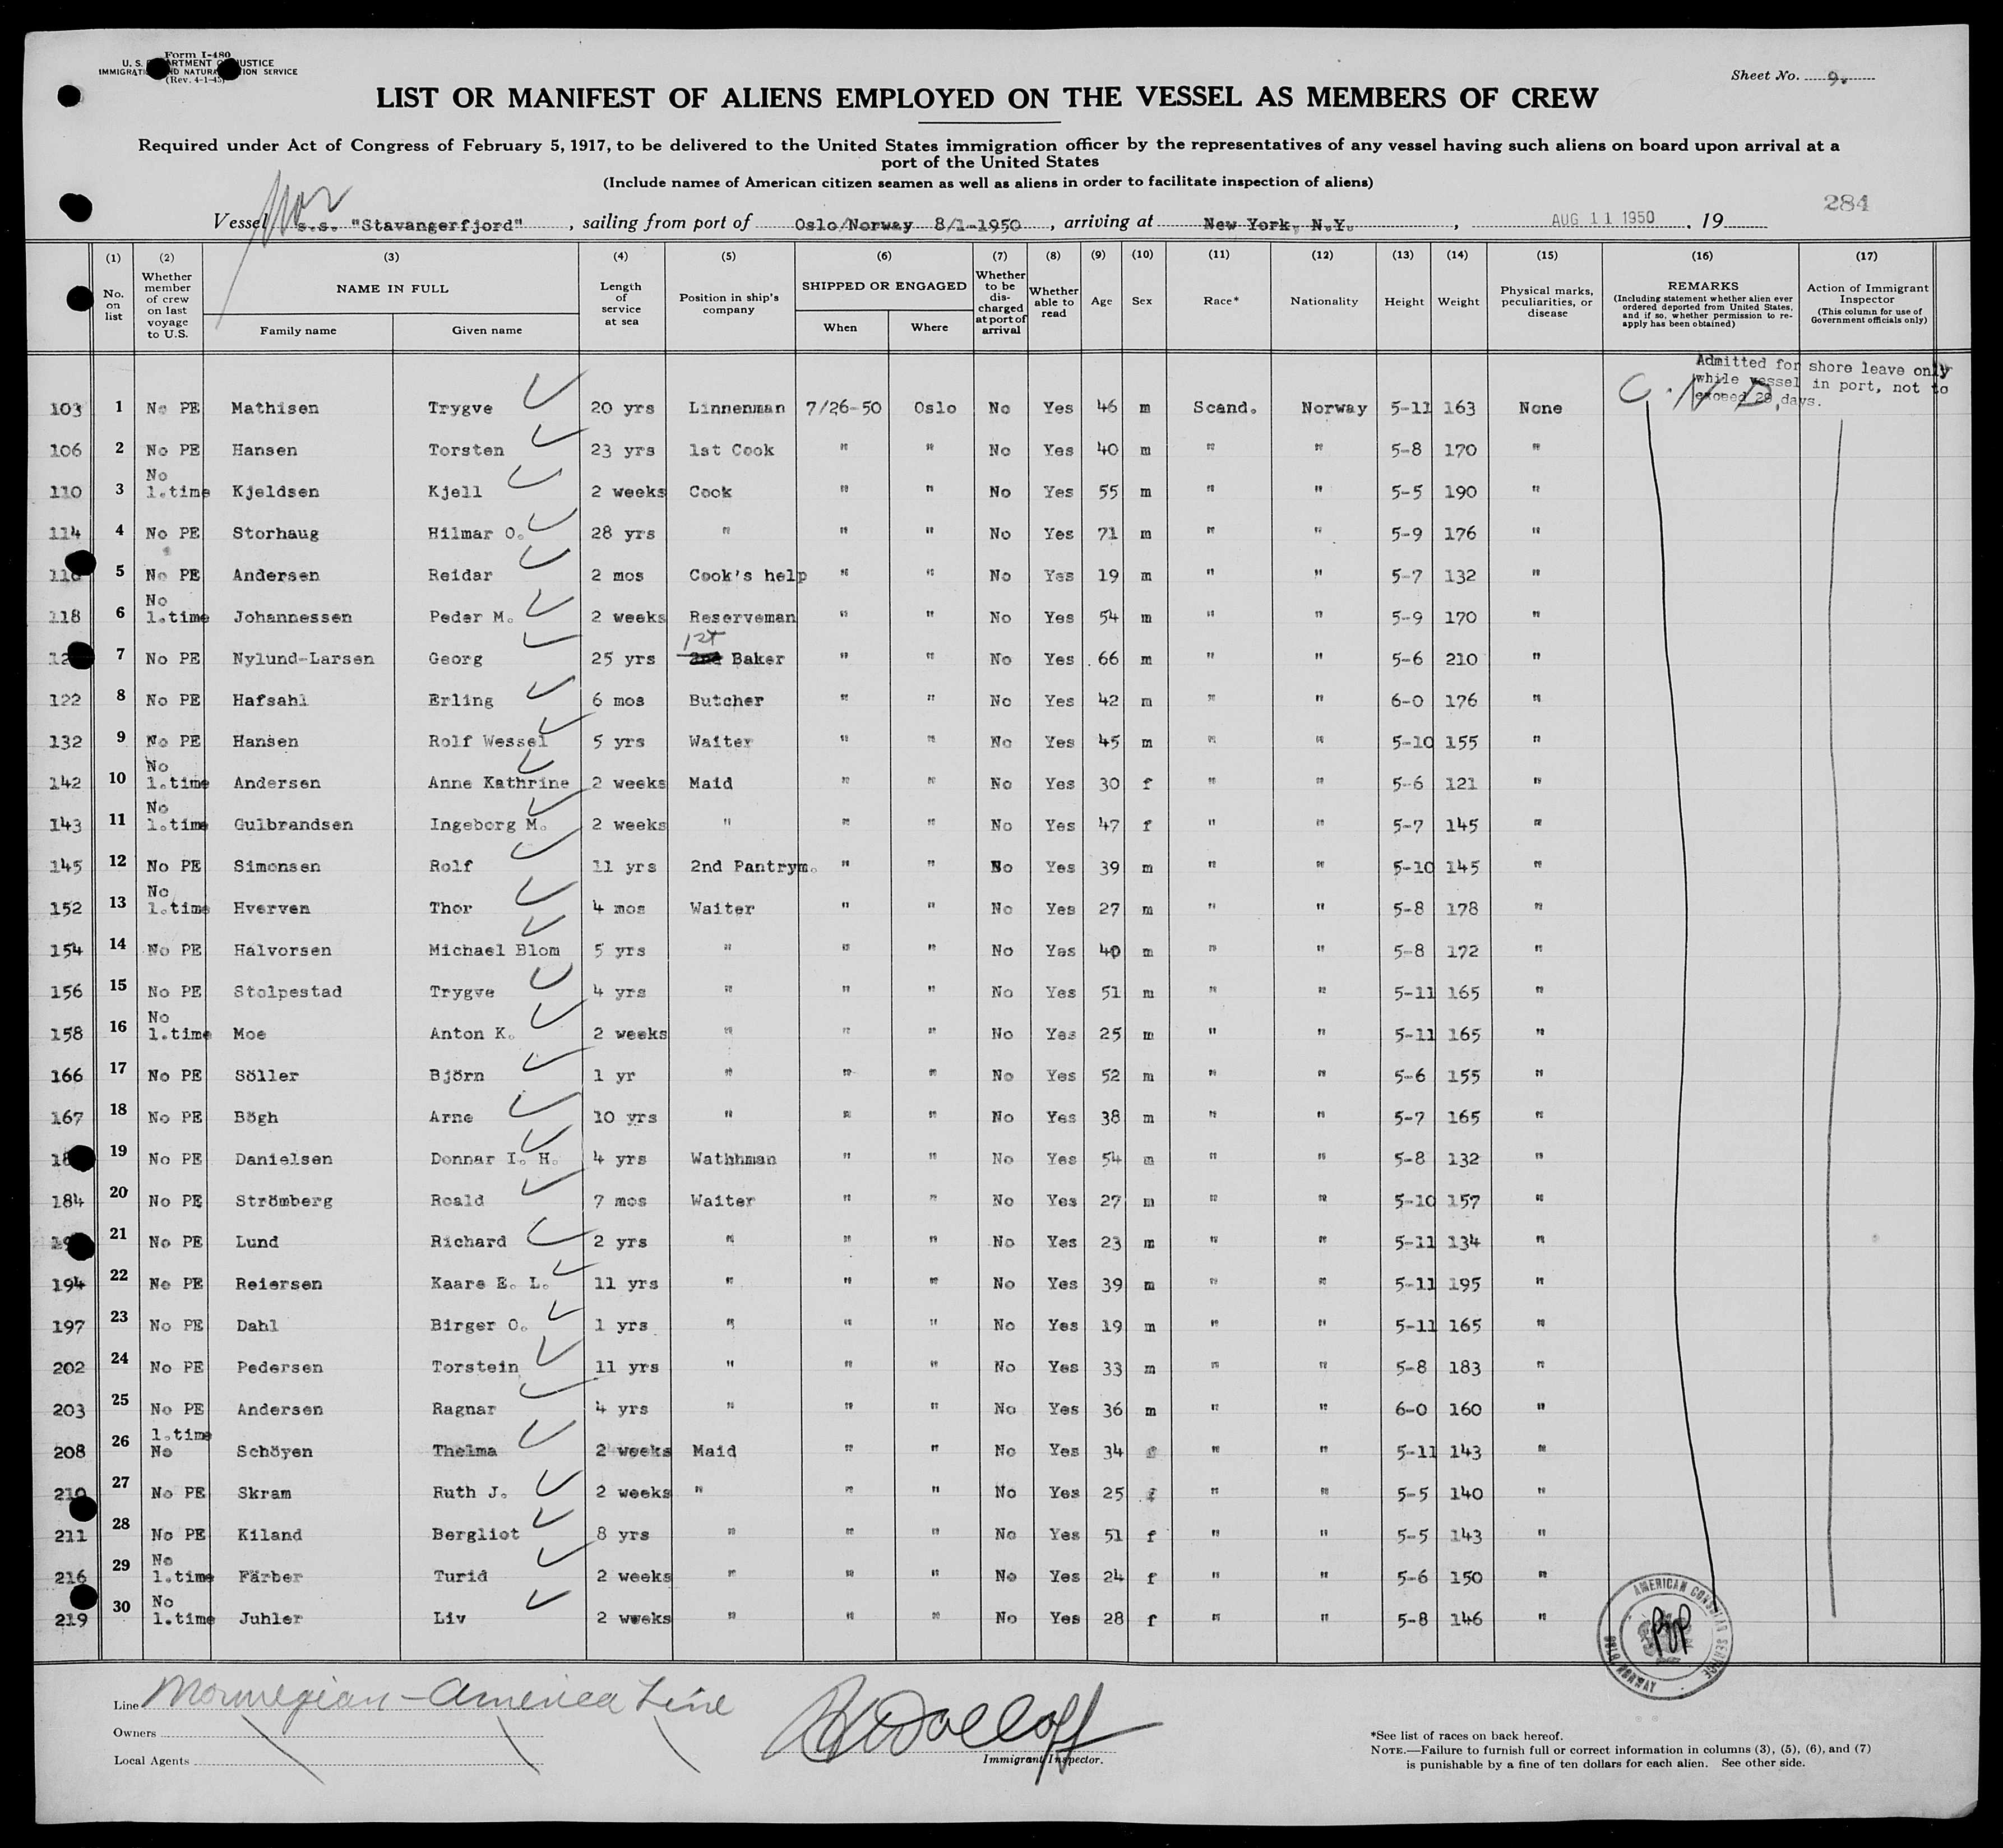 Form I-480
U. S. DEPARTMENT OF JUSTICE
IMMIGRATION AND NATURALIZATION SERVICE
(Rev. 4-1-45)
Sheet No. 9.
LIST OR MANIFEST OF ALIENS EMPLOYED ON THE VESSEL AS MEMBERS OF CREW
Required under Act of Congress of February 5, 1917, to be delivered to the United States immigration officer by the representatives of any vessel having such aliens on board upon arrival at a
port of the United States
(Include names of American citizen seamen as well as aliens in order to facilitate inspection of aliens)
284
Nor
Vessel s.s. "Stavangerfjord" , sailing from port of Oslo/Norway 8/1-1950 , arriving at New York, N.Y. , AUG 11 1950 , 19
(1) (2) (3) (4) (5) (6) (7) (8) (9) (10) (11) (12) (13) (14) (15) (16) (17)
No. on list Whether member of crew on last voyage to U.S. NAME IN FULL Family name Given name Length of service at sea Position in ship's company SHIPPED OR ENGAGED When Where Whether to be discharged at port of arrival Whether able to read Age Sex Race* Nationality Height Weight Physical marks, peculiarities, or disease REMARKS (Including statement whether alien ever ordered deported from United States, and if so, whether permission to reapply has been obtained) Action of Immigrant Inspector (This column for use of Government officials only)
Admitted for shore leave only
while vessel in port, not to
exceed 29 days.
C. N. D.
103 1 No PE Mathisen Trygve 20 yrs Linnenman 7/26-50 Oslo No Yes 46 m Scand. Norway 5-11 163 None
106 2 No PE Hansen Torsten 23 yrs 1st Cook " " No Yes 40 m " " 5-8 170 "
110 3 No 1.time Kjeldsen Kjell 2 weeks Cook " " No Yes 55 m " " 5-5 190 "
114 4 No PE Storhaug Hilmar O. 28 yrs " " " No Yes 71 m " " 5-9 176 "
5 No PE Andersen Reidar 2 mos Cook's help " " No Yes 19 m " " 5-7 132 "
118 6 No 1.time Johannessen Peder M. 2 weeks Reserveman " " No Yes 54 m " " 5-9 170 "
7 No PE Nylund-Larsen Georg 25 yrs 1st 2nd Baker " " No Yes 66 m " " 5-6 210 "
122 8 No PE Hafsahl Erling 6 mos Butcher " " No Yes 42 m " " 6-0 176 "
132 9 No PE Hansen Rolf Wessel 5 yrs Waiter " " No Yes 45 m " " 5-10 155 "
142 10 No 1.time Andersen Anne Kathrine 2 weeks Maid " " No Yes 30 f " " 5-6 121 "
143 11 No 1.time Gulbrandsen Ingeborg M. 2 weeks " " " No Yes 47 f " " 5-7 145 "
145 12 No PE Simonsen Rolf 11 yrs 2nd Pantrym. " " No Yes 39 m " " 5-10 145 "
152 13 No 1.time Hverven Thor 4 mos Waiter " " No Yes 27 m " " 5-8 178 "
154 14 No PE Halvorsen Michael Blom 5 yrs " " " No Yes 40 m " " 5-8 172 "
156 15 No PE Stolpestad Trygve 4 yrs " " " No Yes 51 m " " 5-11 165 "
158 16 No 1.time Moe Anton K. 2 weeks " " " No Yes 25 m " " 5-11 165 "
166 17 No PE Söller Björn 1 yr " " " No Yes 52 m " " 5-6 155 "
167 18 No PE Bögh Arne 10 yrs " " " No Yes 38 m " " 5-7 165 "
19 No PE Danielsen Donnar I. H. 4 yrs Wathhman " " No Yes 54 m " " 5-8 132 "
184 20 No PE Strömberg Roald 7 mos Waiter " " No Yes 27 m " " 5-10 157 "
21 No PE Lund Richard 2 yrs " " " No Yes 23 m " " 5-11 134 "
194 22 No PE Reiersen Kaare E. L. 11 yrs " " " No Yes 39 m " " 5-11 195 "
197 23 No PE Dahl Birger O. 1 yrs " " " No Yes 19 m " " 5-11 165 "
202 24 No PE Pedersen Torstein 11 yrs " " " No Yes 33 m " " 5-8 183 "
203 25 No PE Andersen Ragnar 4 yrs " " " No Yes 36 m " " 6-0 160 "
208 26 1.time No Schöyen Thelma 2 weeks Maid " " No Yes 34 f " " 5-11 143 "
210 27 No PE Skram Ruth J. 2 weeks " " " No Yes 25 f " " 5-5 140 "
211 28 No PE Kiland Bergliot 8 yrs " " " No Yes 51 f " " 5-5 143 "
216 29 No 1.time Färber Turid 2 weeks " " " No Yes 24 f " " 5-6 150 "
219 30 No 1.time Juhler Liv 2 weeks " " " No Yes 28 f " " 5-8 146 "
AMERICAN CONSULAR SERVICE
OSLO, NORWAY
Line Norwegian-America Line
Owners
Local Agents
Immigrant Inspector.
*See list of races on back hereof.
NOTE.—Failure to furnish full or correct information in columns (3), (5), (6), and (7)
is punishable by a fine of ten dollars for each alien. See other side.